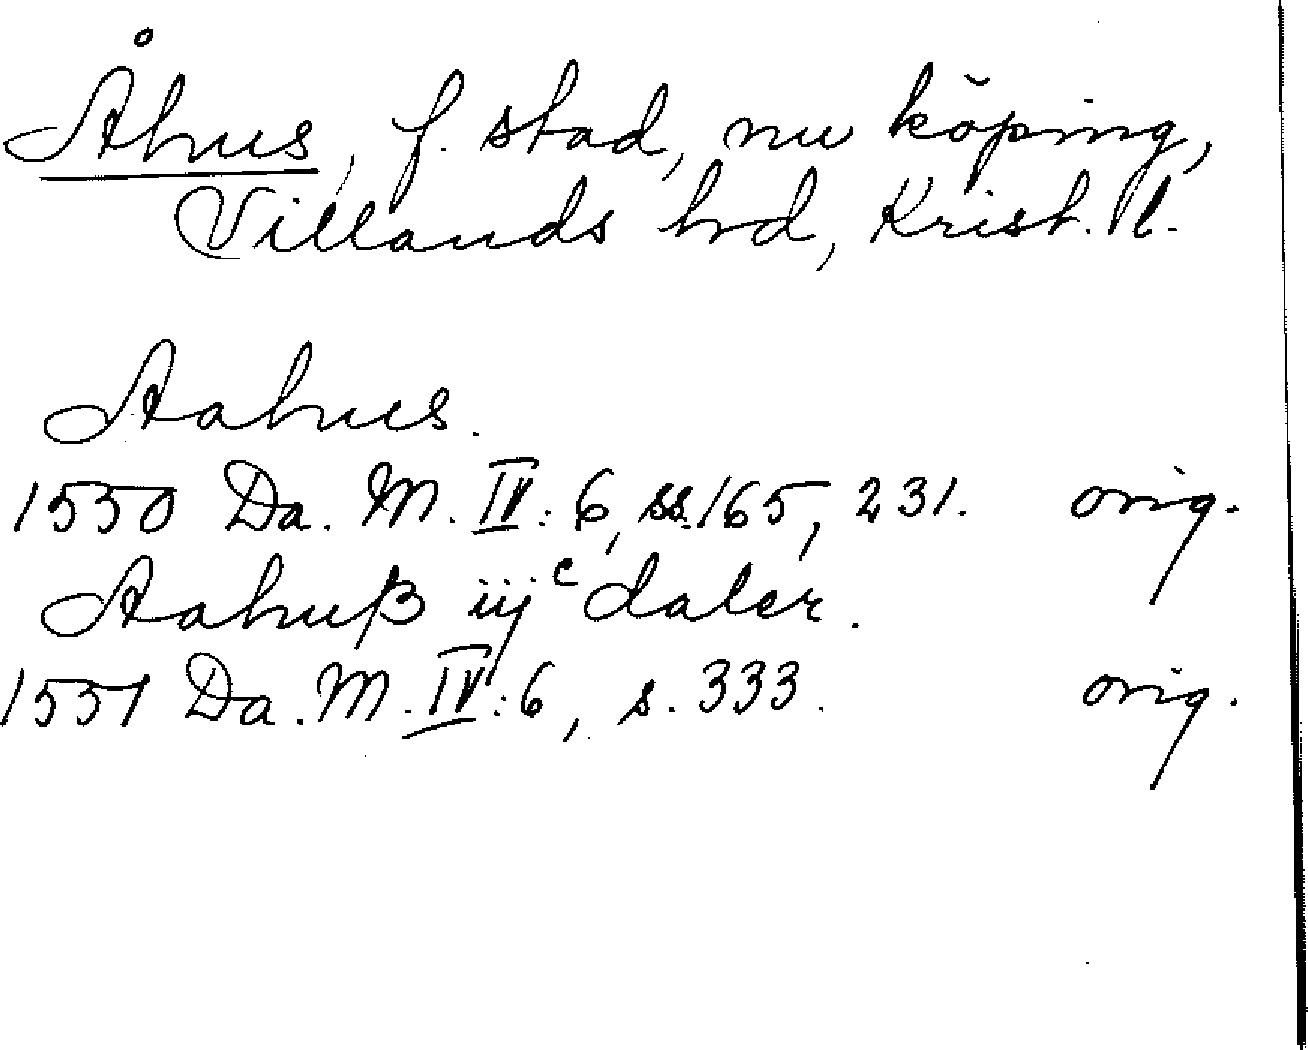 Åhus, f. stad, nu köping,
Villands hrd, Krist. l.
Aahus.
1550 Da. M. IV: 6, ss. 165, 231. orig.
Aahuß iijᶜ daler.
1551 Da. M. IV: 6, s. 333. orig.